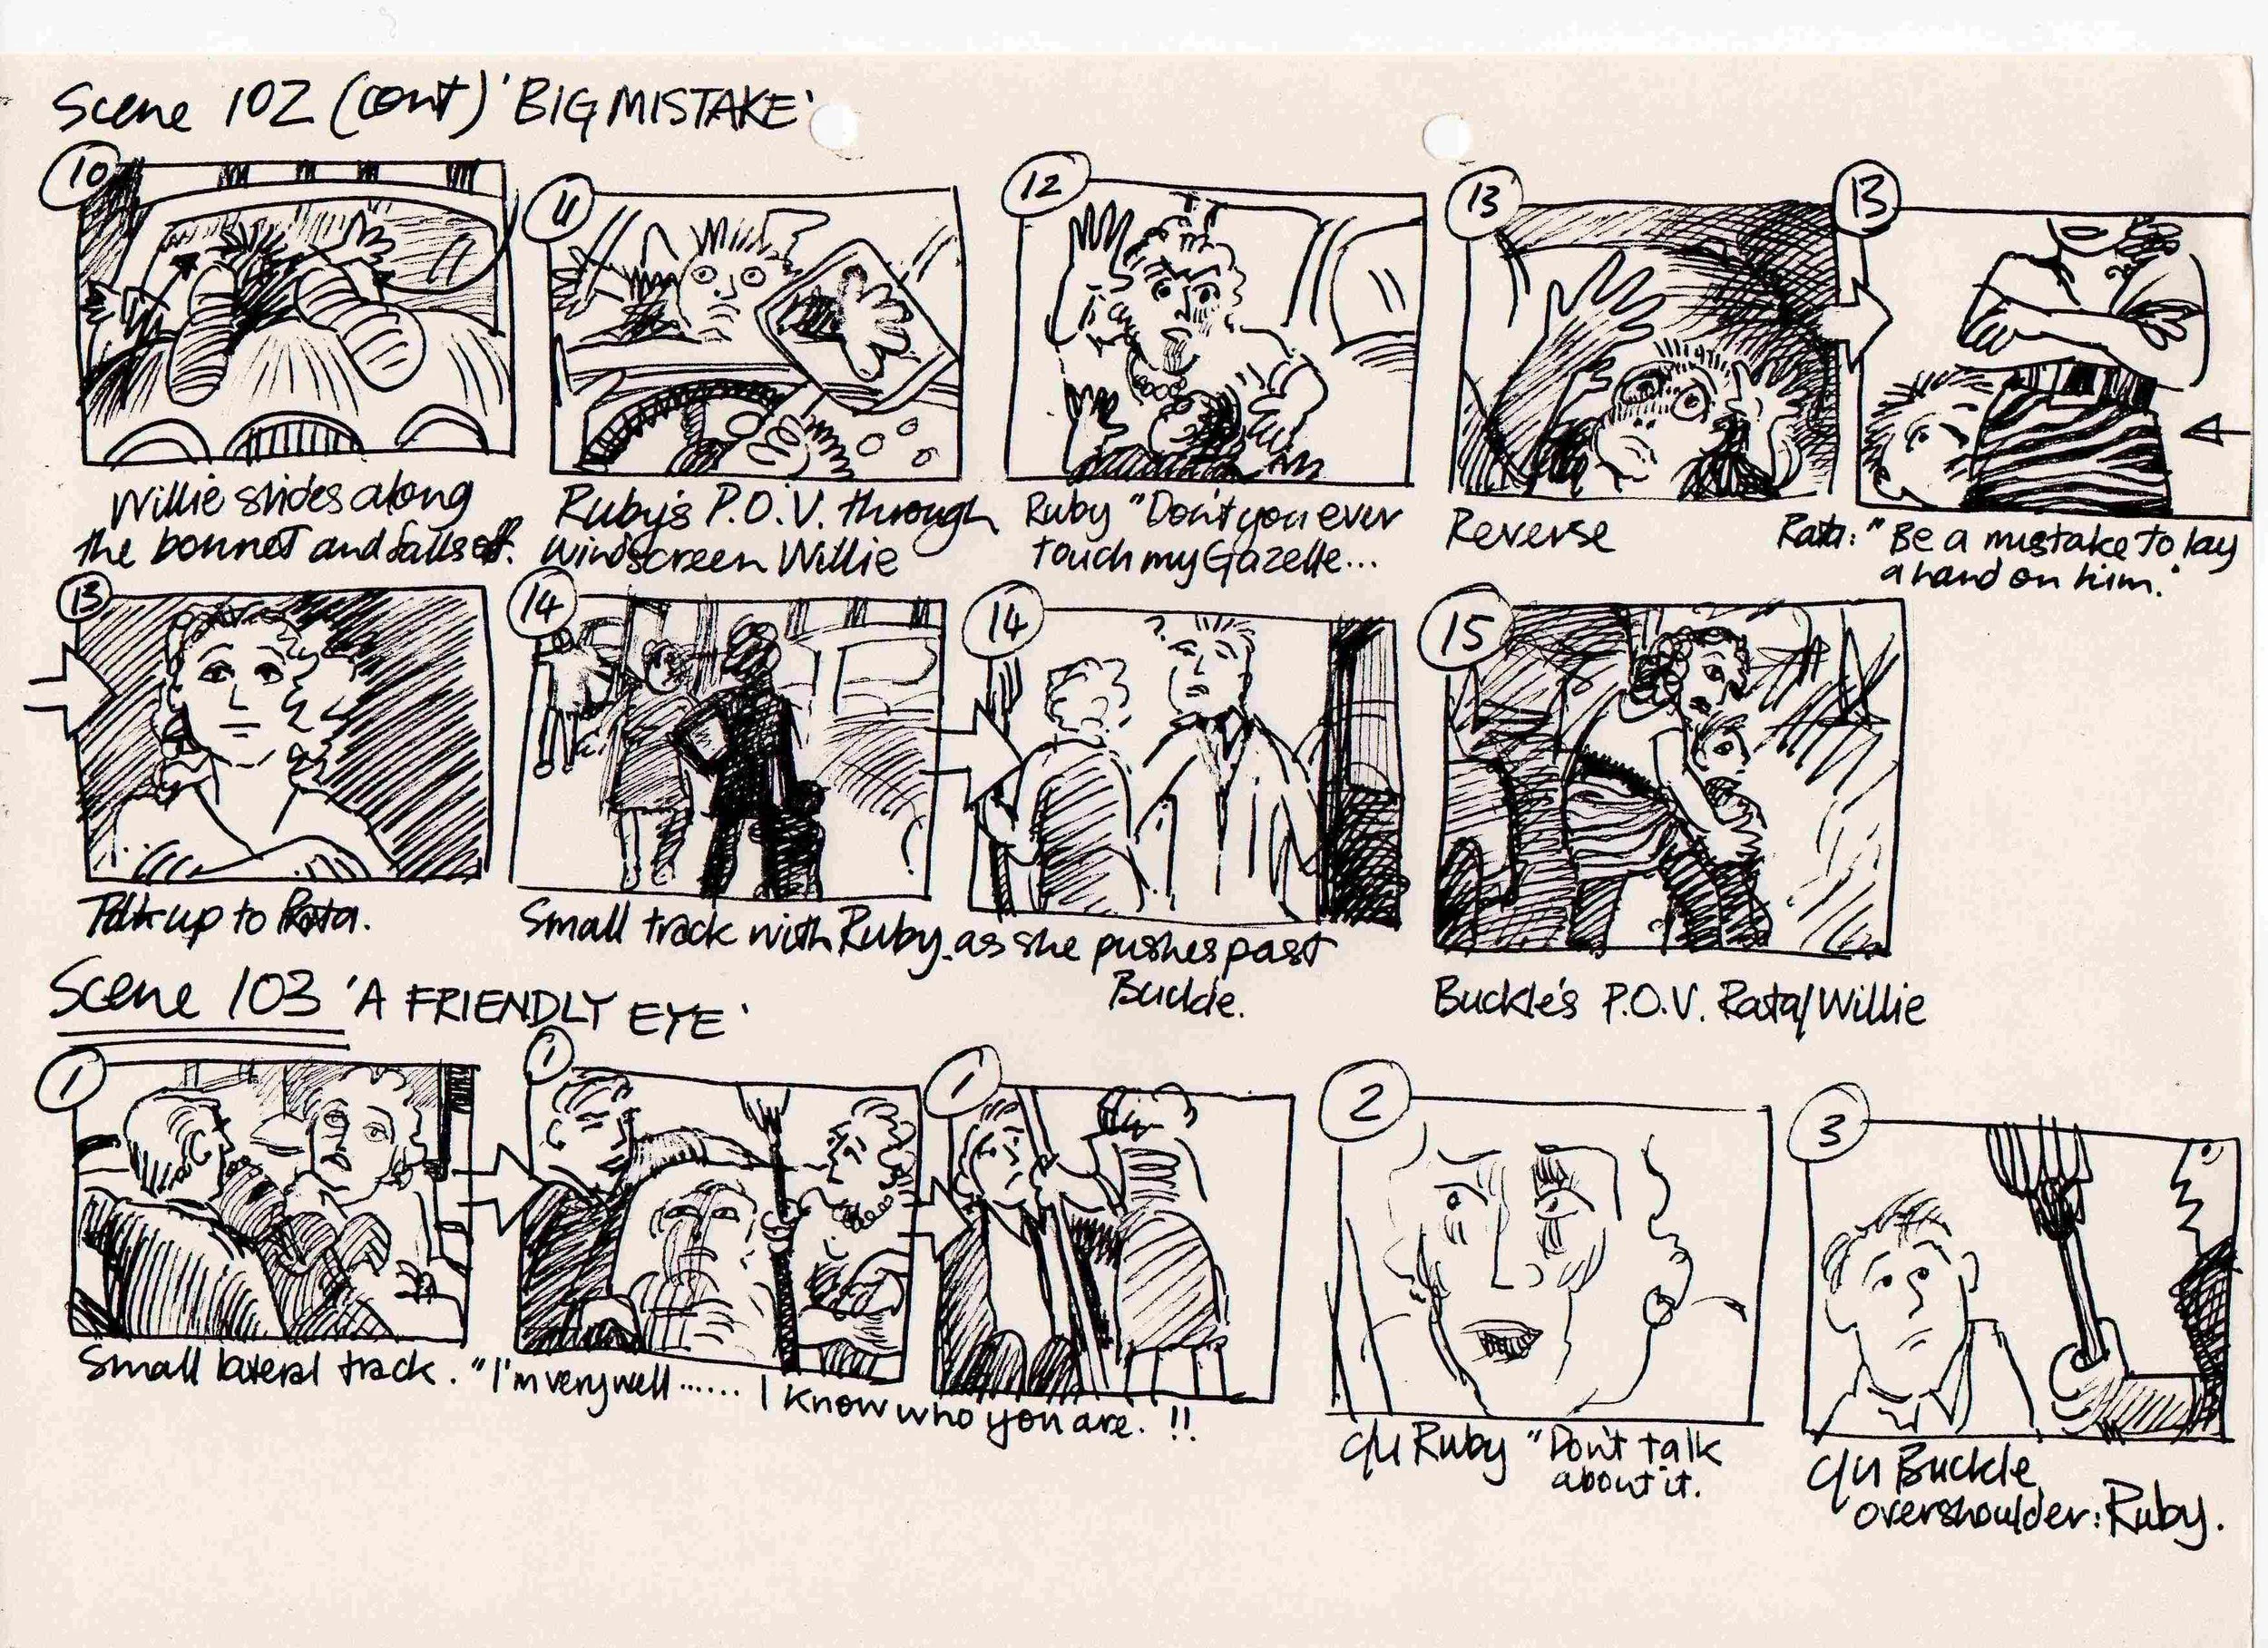 Scene 102 (cont) 'BIG MISTAKE'
10
11
12
13
13
Willie slides along
the bonnet and falls off.
Ruby's P.O.V. through
windscreen Willie
Ruby "Don't you ever
touch my Gazelle...
Reverse
Rata: "Be a mistake to lay
a hand on him."
13
14
14
15
up to Rata.
Small track with Ruby as she pushes past
Buckle.
Buckle's P.O.V. Rata/Willie
Scene 103 'A FRIENDLY EYE'
1
1
1
2
3
Small lateral track. "I'm very well...... I know who you are. !!
c/u Ruby "Don't talk
about it.
c/u Buckle
overshoulder: Ruby.